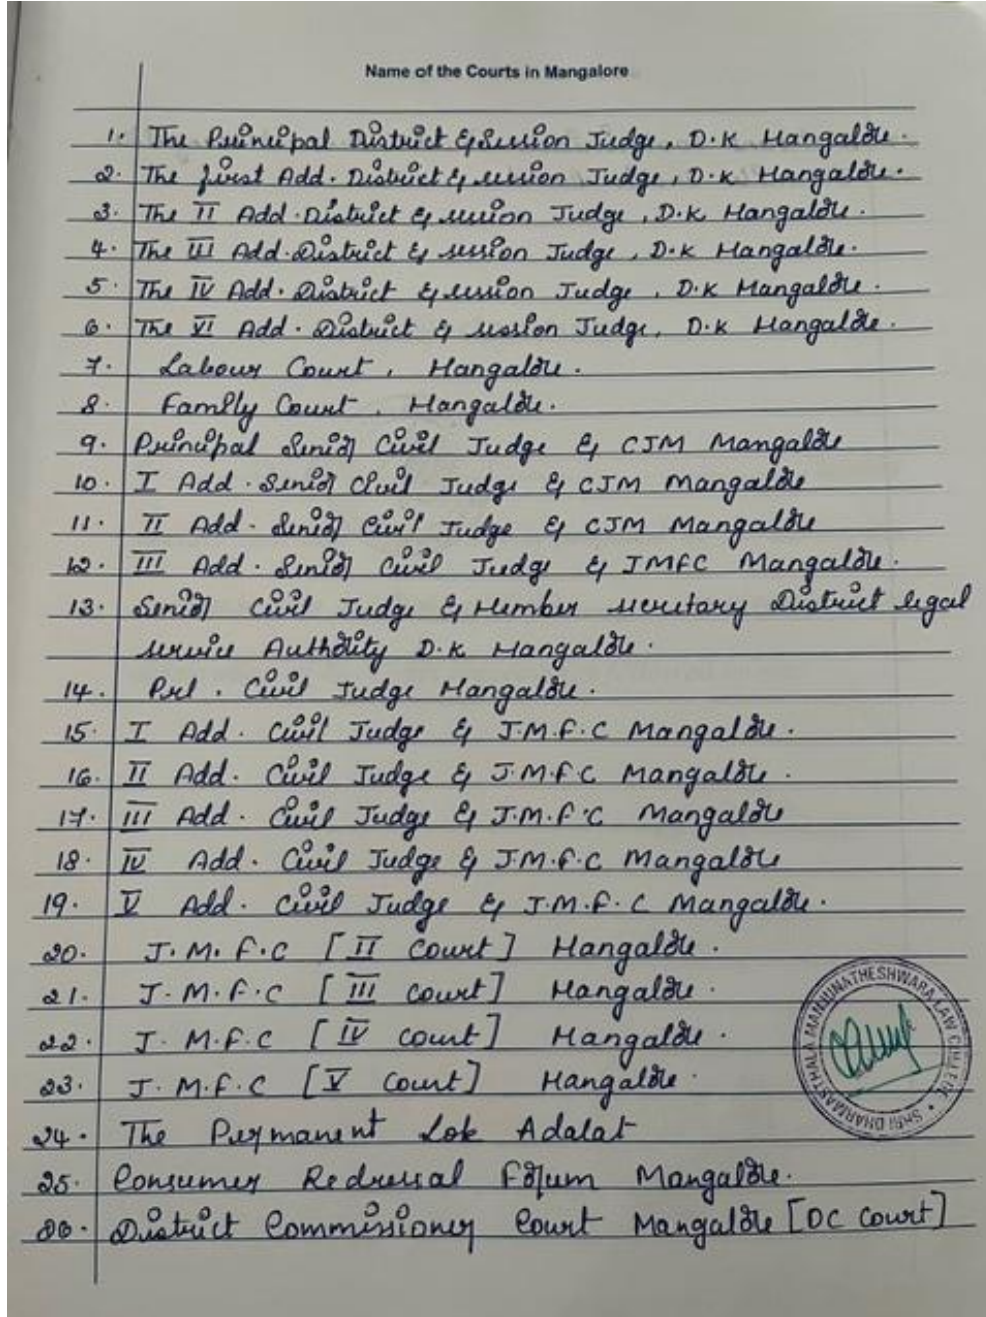 Name of the Courts in Mangalore
1. The Principal District & Session Judge, D.K Mangalore.
2. The first Add. District & session Judge, D.K Mangalore.
3. The II Add. District & session Judge, D.K Mangalore.
4. The III Add. District & session Judge, D.K Mangalore.
5. The IV Add. District & session Judge, D.K Mangalore.
6. The VI Add. District & session Judge, D.K Mangalore.
7. Labour Court, Mangalore.
8. Family Court, Mangalore.
9. Principal Senior Civil Judge & CJM Mangalore
10. I Add. Senior Civil Judge & CJM Mangalore
11. II Add. Senior Civil Judge & CJM Mangalore
12. III Add. Senior Civil Judge & JMFC Mangalore.
13. Senior Civil Judge & Member secretary District legal
service Authority D.K Mangalore.
14. Prl. Civil Judge Mangalore.
15. I Add. Civil Judge & J.M.F.C Mangalore.
16. II Add. Civil Judge & J.M.F.C Mangalore.
17. III Add. Civil Judge & J.M.F.C Mangalore
18. IV Add. Civil Judge & J.M.F.C Mangalore
19. V Add. Civil Judge & J.M.F.C Mangalore.
20. J.M.F.C [II Court] Mangalore.
21. J.M.F.C [III Court] Mangalore.
22. J.M.F.C [IV Court] Mangalore.
23. J.M.F.C [V Court] Mangalore.
24. The Permanent Lok Adalat
25. Consumer Redressal Forum Mangalore.
26. District Commissioner Court Mangalore [DC Court]
SHRI DHARMASTHALA MANJUNATHESHWARA LAW COLLEGE